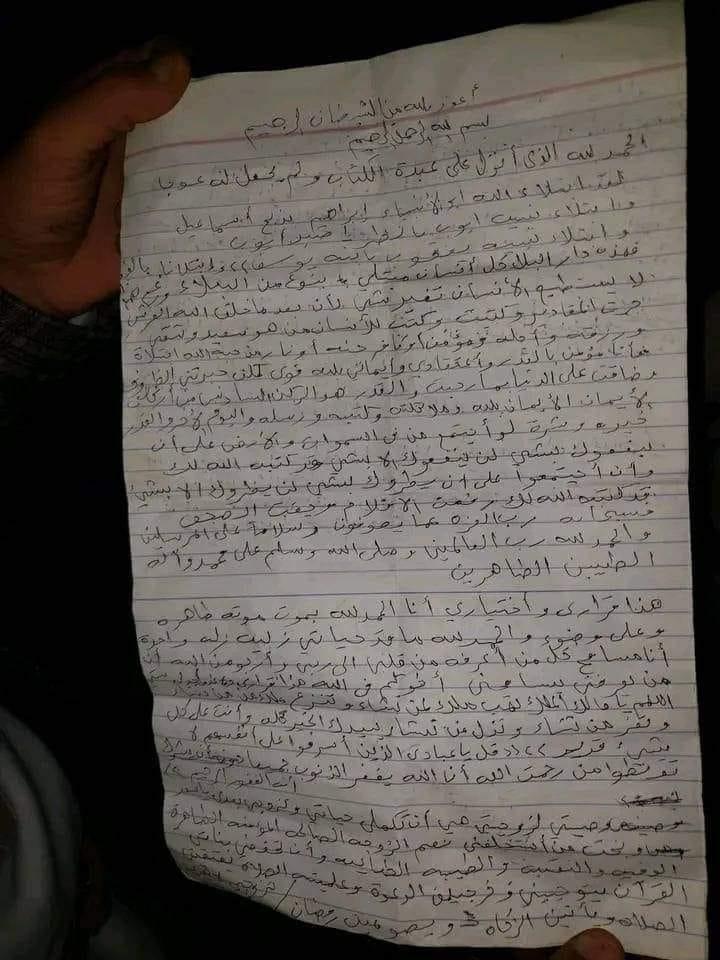 أعوذ بالله من الشيطان الرجيم
بسم الله الرحمن الرحيم
الحمد لله الذي أنزل على عبدة الكتاب ولم يجعل له عوجا
لقد ابتلاء الله الأنبياء إبراهيم بذبح أسماعيل
وابتلاء نبيه ايوب يا صبر أيوب
وابتلاء نبيه يعقوب بابنه يوسف وابتلانا
فهذه دار البلا كل أنسان مبتلى بنوع من البلاء
لا يستطيع الأنسان تغير شي لأن بعد ما خلق الله العرش
جرت المقادير وكتبت وكتب للأنسان من هو سعيد وشقي
ورزقه وأجله مؤمن أو كافر جنه أو نار
فأنا مؤمن بالقدر وأعتقادي وأيماني بالله قوي لكن
وضاقت على الدنيا بما رحبت والقدر هو الركن السادس من أركان
الأيمان الأيمان بالله وملائكته وكتبه ورسله واليوم الأخر والقدر
خيره وشرة لو أجتمع من في السموات والأرض على أن
ينفعوك بشي لن ينفعوك الا بشي قد كتبه الله لك
وأن أجتمعوا على ان يظروك بشي لن يظروك الا بشي
قد كتبه الله لك رفعت الأقلام وجفت الصحف
سبحان رب العزه عما يصفون وسلام على المرسلين
والحمد لله رب العالمين وصلى الله وسلم على محمد وآله
الطيبين الطاهرين
هذا قراري وأختياري أنا الحمد لله بموت موته طاهره
وعلى وضوء والحمد لله ما قد حياتي زليت زله واحدة
أنا مسامح كل من أعرفه من قلبي الى ربي وأرجو من الله أن
من يعرفني يسامحني أخوكم في الله هذا قراري
اللهم يا مالك الملك تهب ملك لمن تشاء وتنزع ملك من تشاء
وتعز من تشاء وتذل من تشاء بيدك الخير كله وأنت على كل
شيء قدير قل يا عبادي الذين أسرفوا على أنفسهم لا
تقنطوا من رحمت الله أنا الله يغفر الذنوب جميعا
وصيتي لزوجتي هي أن تكملي حياتي
نعم الزوجه الصالحه المؤمنه الطاهرة
الوفيه والنقية والطيبه الحنانيه وأن تحفظي بناتي
القرآن وعلميهن الصلاه
الصلاه ويأتين الزكاه ويصومين رمضان